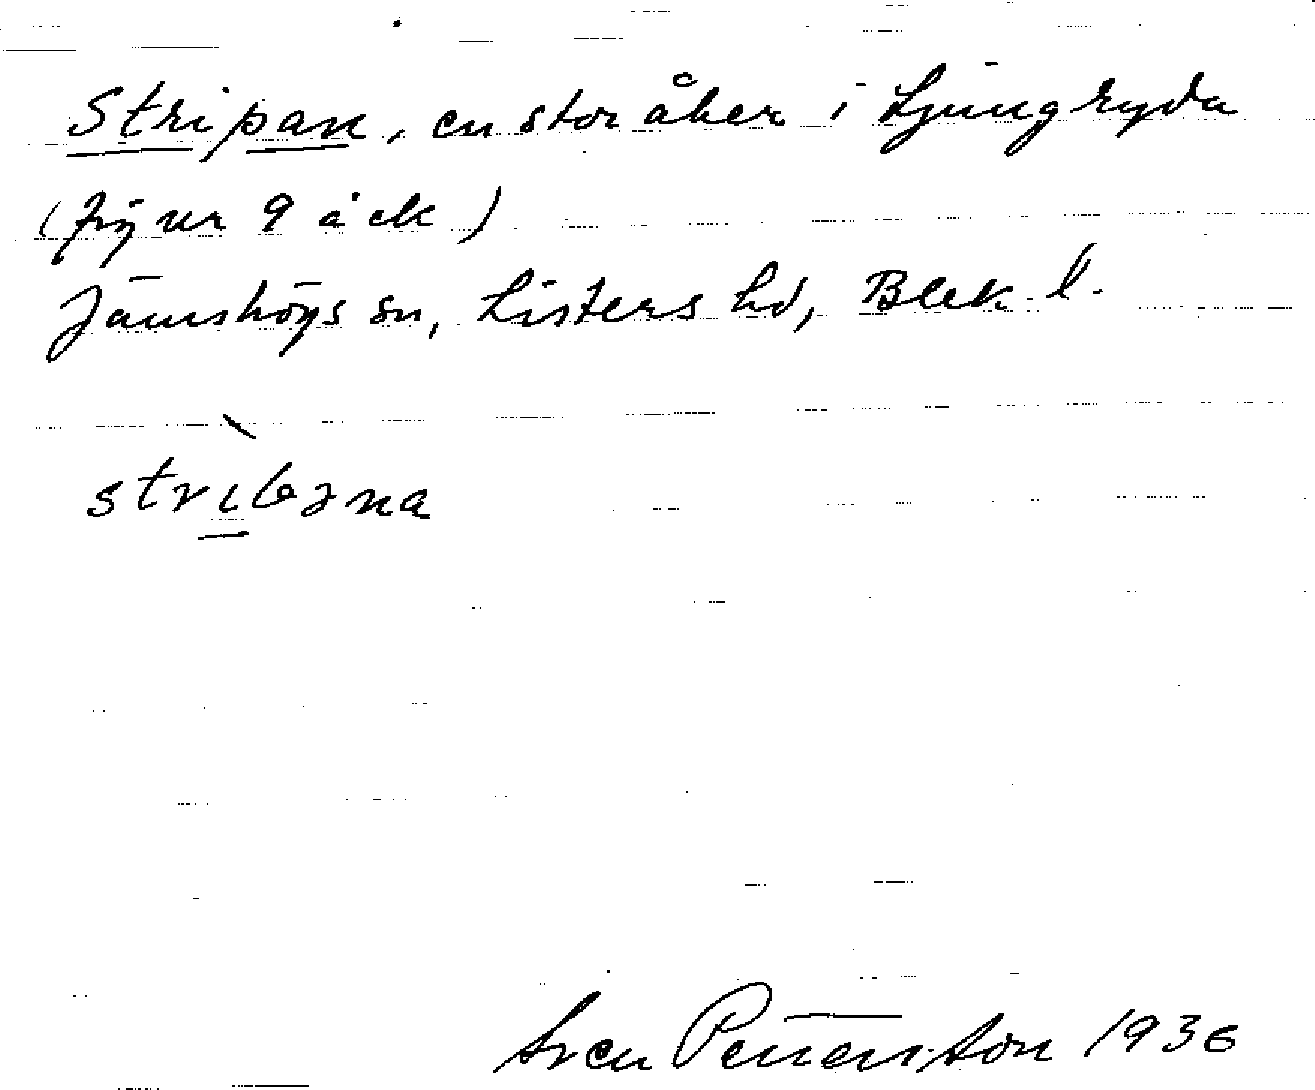 Stripan, en stor åker i Ljungryda
9
Jämshögs sn, Listers hd, Blek. l.
strìbəna
Sven Pettersson 1936